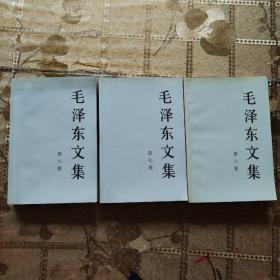 毛泽东文集
第八卷
毛泽东文集
第七卷
毛泽东文集
第六卷